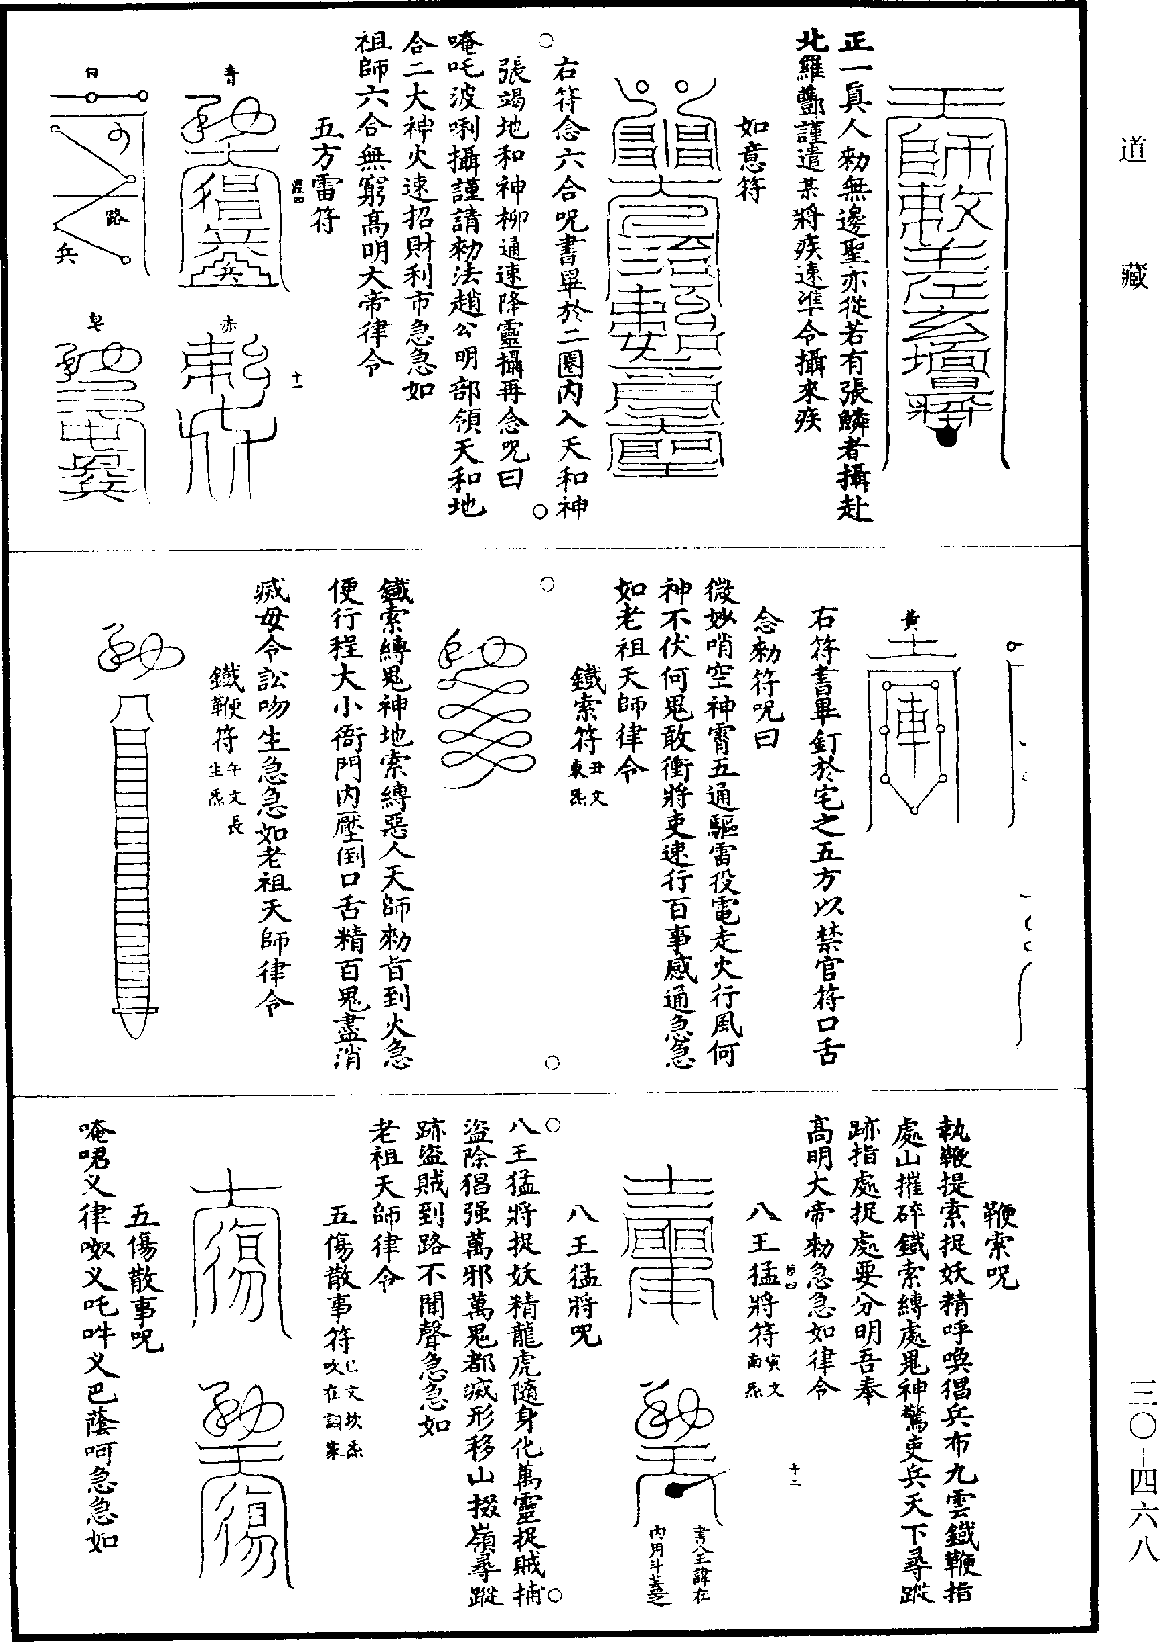 道藏
正一眞人勑無邊聖亦從若有張鱗者攝赴
北羅酆謹遣某將疾速準令攝來疾
如意符
右符念六合呪書畢於二圈内入天和神
張竭地和神柳通速降靈攝再念呪曰
唵吒波唎攝謹請勑法趙公明部領天和地
合二大神火速招財利市急急如
祖師六合無窮高明大帝律令
五方雷符
青
十一
赤
白
路
兵
皂
黃
右符書畢釘於宅之五方以禁官符口舌
念勑符呪曰
微妙哨空神霄五通驅雷役電走火行風何
神不伏何鬼敢衝將吏速行百事感通急急
如老祖天師律令
鐵索符丑文東炁
鐵索縛鬼神地索縛惡人天師勑旨到火急
便行程大小衙門内壓倒口舌精百鬼盡消
滅毋令訟吻生急急如老祖天師律令
鐵鞭符午文長生炁
鞭索呪
執鞭提索捉妖精呼喚猖兵布九雲鐵鞭指
處山摧碎鐵索縛處鬼神驚吏兵天下尋蹤
跡指處捉處要分明吾奉
高明大帝勑急急如律令
八王猛將符寅文南炁
十二
書八王諱在
内用斗蓋之
八王猛將呪
八王猛將捉妖精龍虎隨身化萬靈捉賊捕
盜除猖强萬邪萬鬼都滅形移山掇嶺尋蹤
跡盜賊到路不聞聲急急如
老祖天師律令
五傷散事符
五傷散事呪
唵㖮义律呶义吒吽义巴蔭呵急急如
三〇-四六八